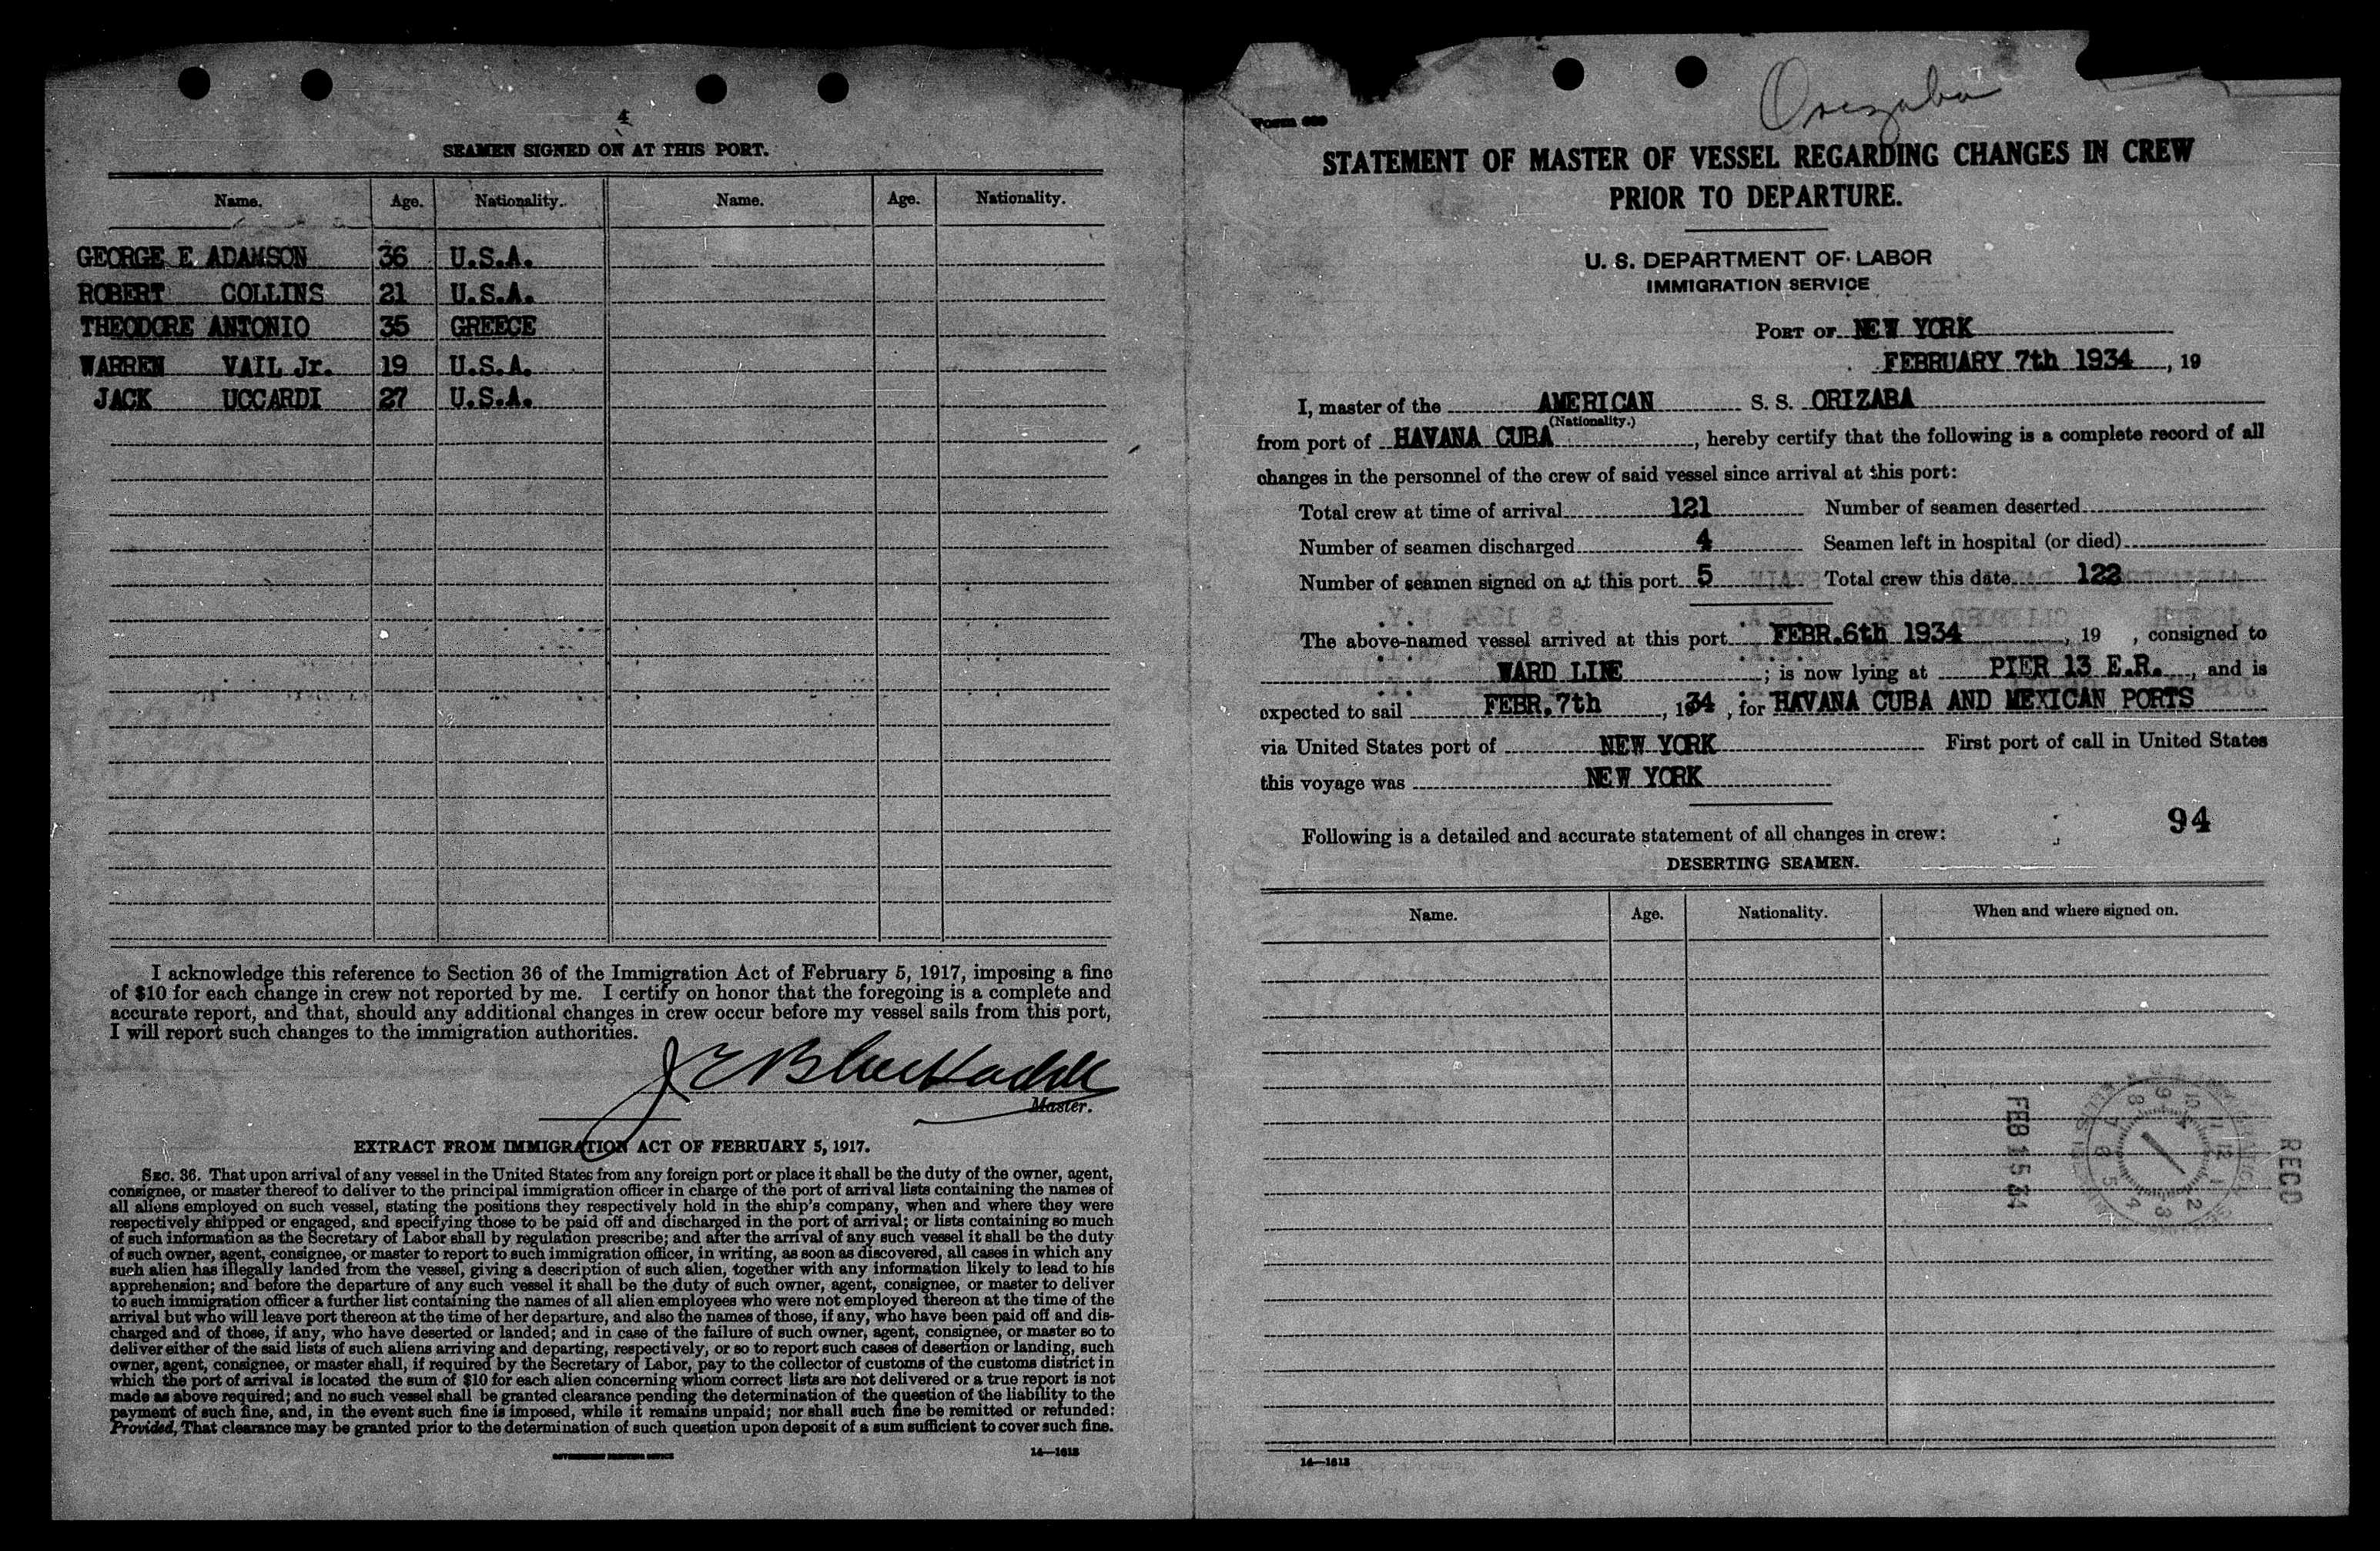 4
SEAMEN SIGNED ON AT THIS PORT.
Name. Age. Nationality. Name. Age. Nationality.
GEORGE E ADAMSON 36 U.S.A.
ROBERT COLLINS 21 U.S.A.
THEODORE ANTONIO 35 GREECE
WARREN VAIL Jr. 19 U.S.A.
JACK UCCARDI 27 U.S.A.
I acknowledge this reference to Section 36 of the Immigration Act of February 5, 1917, imposing a fine
of $10 for each change in crew not reported by me. I certify on honor that the foregoing is a complete and
accurate report, and that, should any additional changes in crew occur before my vessel sails from this port,
I will report such changes to the immigration authorities.
Master.
EXTRACT FROM IMMIGRATION ACT OF FEBRUARY 5, 1917.
SEC. 36. That upon arrival of any vessel in the United States from any foreign port or place it shall be the duty of the owner, agent,
consignee, or master thereof to deliver to the principal immigration officer in charge of the port of arrival lists containing the names of
all aliens employed on such vessel, stating the positions they respectively hold in the ship's company, when and where they were
respectively shipped or engaged, and specifying those to be paid off and discharged in the port of arrival; or lists containing so much
of such information as the Secretary of Labor shall by regulation prescribe; and after the arrival of any such vessel it shall be the duty
of such owner, agent, consignee, or master to report to such immigration officer, in writing, as soon as discovered, all cases in which any
such alien has illegally landed from the vessel, giving a description of such alien, together with any information likely to lead to his
apprehension; and before the departure of any such vessel it shall be the duty of such owner, agent, consignee, or master to deliver
to such immigration officer a further list containing the names of all alien employees who were not employed thereon at the time of the
arrival but who will leave port thereon at the time of her departure, and also the names of those, if any, who have been paid off and dis-
charged and of those, if any, who have deserted or landed; and in case of the failure of such owner, agent, consignee, or master so to
deliver either of the said lists of such aliens arriving and departing, respectively, or so to report such cases of desertion or landing, such
owner, agent, consignee, or master shall, if required by the Secretary of Labor, pay to the collector of customs of the customs district in
which the port of arrival is located the sum of $10 for each alien concerning whom correct lists are not delivered or a true report is not
made as above required; and no such vessel shall be granted clearance pending the determination of the question of the liability to the
payment of such fine, and, in the event such fine is imposed, while it remains unpaid; nor shall such fine be remitted or refunded:
Provided, That clearance may be granted prior to the determination of such question upon deposit of a sum sufficient to cover such fine.
GOVERNMENT PRINTING OFFICE 14—1613
Orizaba
Form 689
STATEMENT OF MASTER OF VESSEL REGARDING CHANGES IN CREW
PRIOR TO DEPARTURE.
U. S. DEPARTMENT OF LABOR
IMMIGRATION SERVICE
PORT OF NEW YORK
FEBRUARY 7th 1934, 19
I, master of the AMERICAN S. S. ORIZABA
(Nationality.)
from port of HAVANA CUBA, hereby certify that the following is a complete record of all
changes in the personnel of the crew of said vessel since arrival at this port:
Total crew at time of arrival 121 Number of seamen deserted
Number of seamen discharged 4 Seamen left in hospital (or died)
Number of seamen signed on at this port 5 Total crew this date 122
The above-named vessel arrived at this port FEBR.6th 1934, 19 , consigned to
WARD LINE; is now lying at PIER 13 E.R., and is
expected to sail FEBR.7th, 1934, for HAVANA CUBA AND MEXICAN PORTS
via United States port of NEW YORK First port of call in United States
this voyage was NEW YORK
94
Following is a detailed and accurate statement of all changes in crew:
DESERTING SEAMEN.
Name. Age. Nationality. When and where signed on.
FEB 15 34
RECD
14—1613